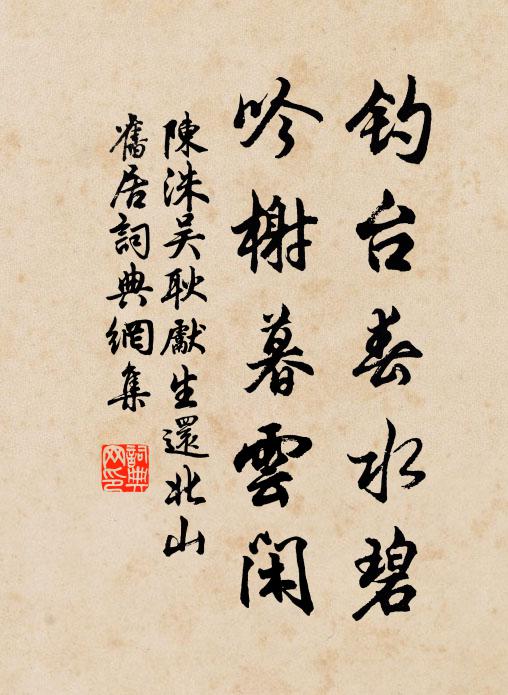 钓台春水碧
吟榭暮雲閑
陳洙吴耿獻生還北山
舊居詞典網集
詞典网印